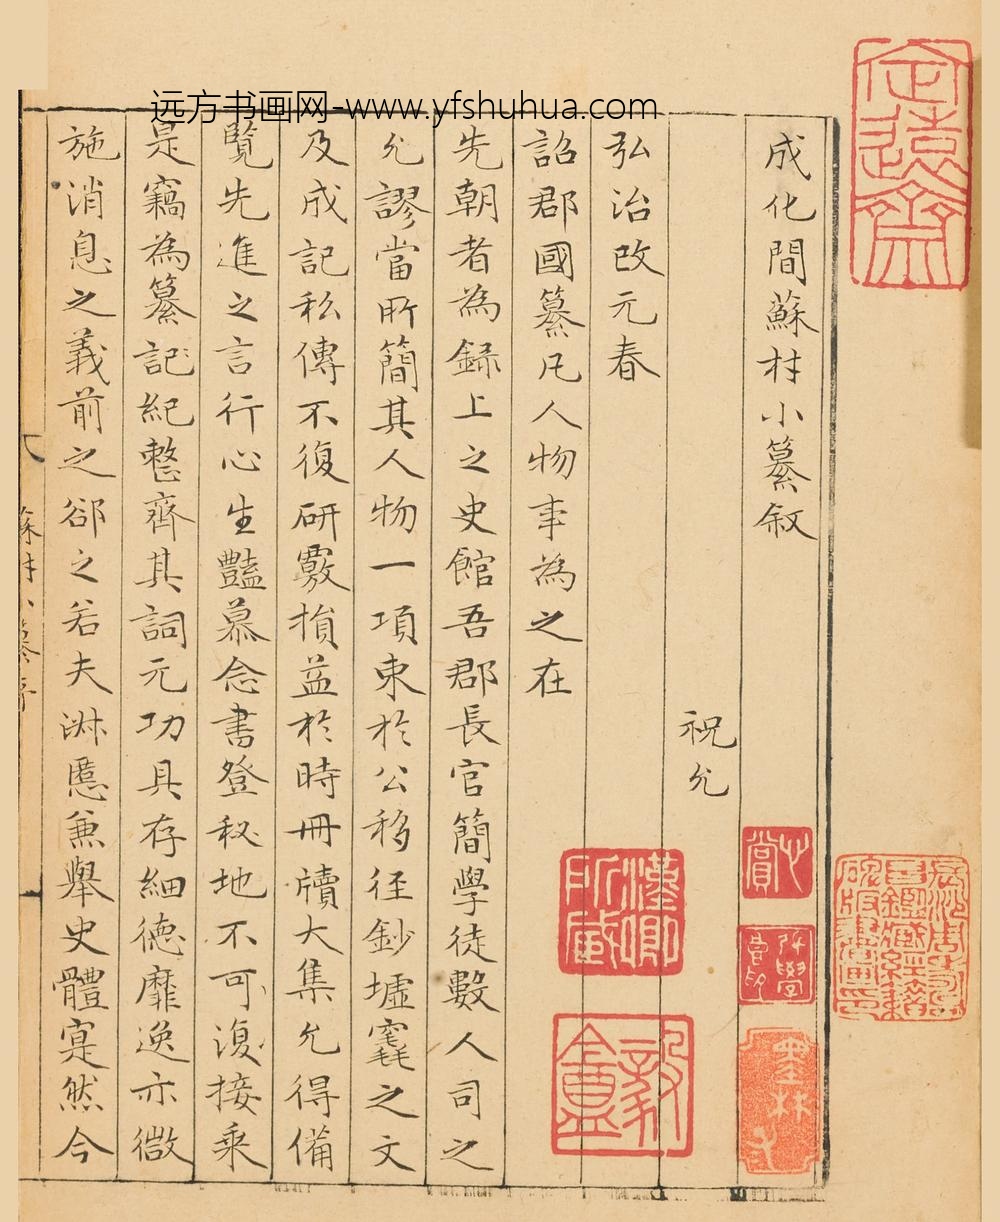 远方书画网-www.yfshuhua.com
成化間蘇材小纂叙
祝允
弘治改元春
詔郡國纂凡人物事為之在
先朝者為録上之史館吾郡長官簡學徒數人司之
允謬當所簡其人物一項束於公移徑鈔墟窀之文
及成記私傳不復研覈損益於時冊牘大集允得備
覧先進之言行心生豔慕念書登秘地不可復接乘
是竊為纂記紀整齊其詞元功具存細德靡逸亦微
施消息之義前之郤之若夫淋慝兼舉史體寔然今
蘇材小纂序
心賞
墨林